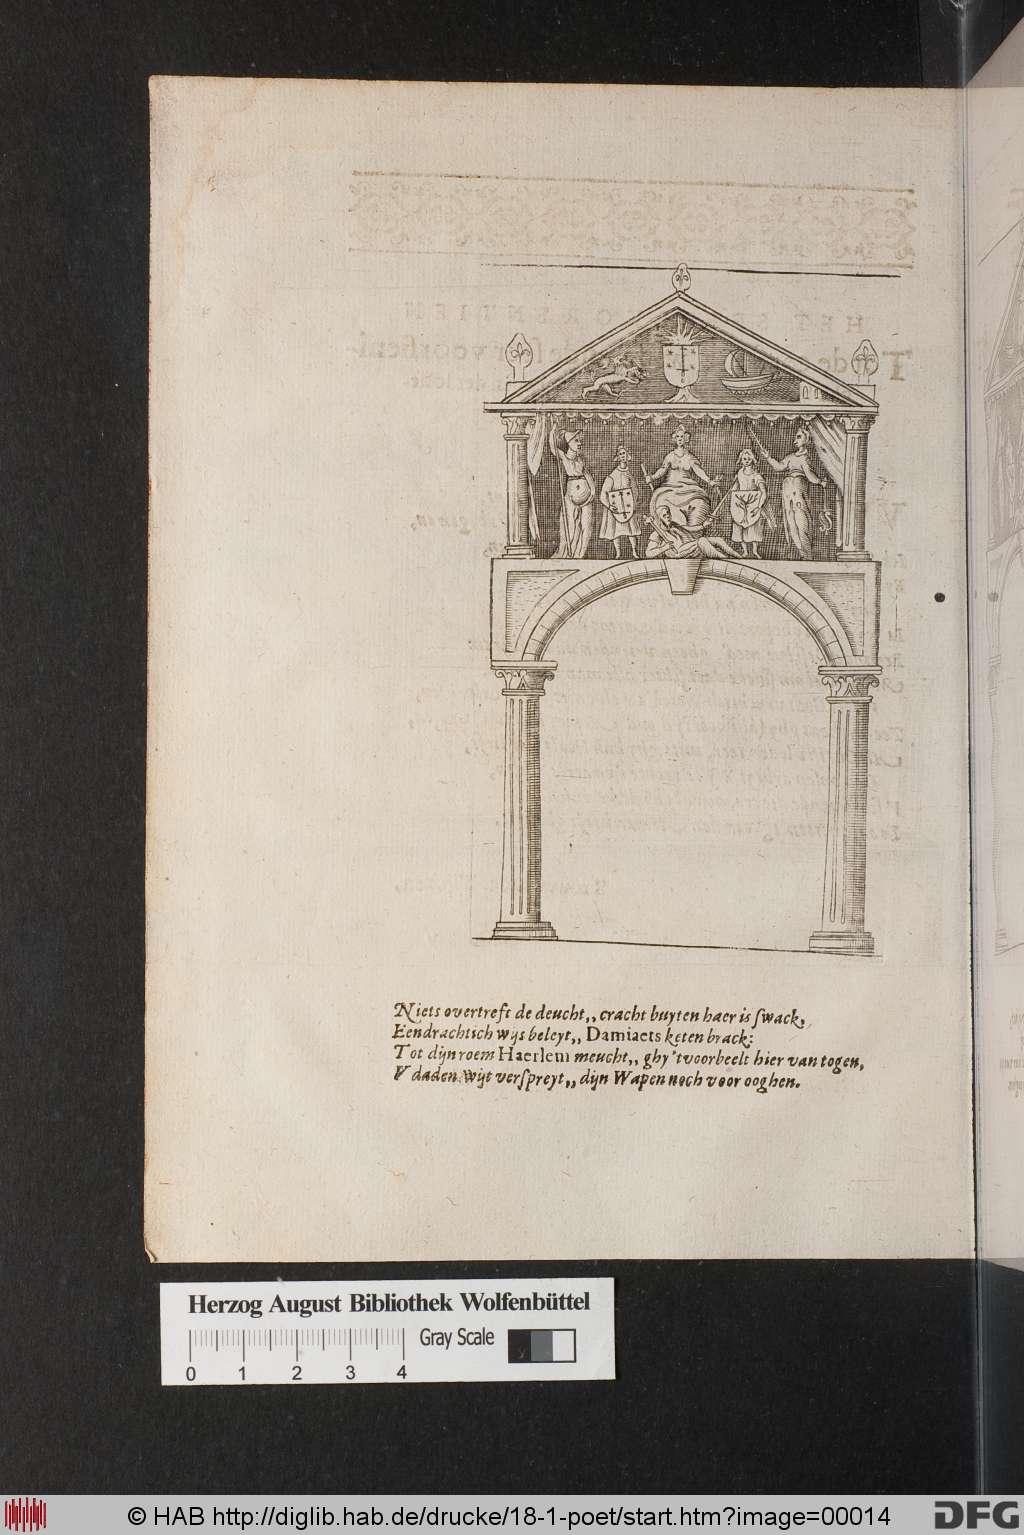 Niets overtreft de deucht,, cracht buyten haer is ſwack,
Eendrachtich wijs beleyt,, Damiaets keten brack:
Tot dijn roem Haerlem meucht,, ghy 't voorbeelt hier van togen,
V daden wijt verſpreyt,, dijn Wapen noch voor ooghen.
Herzog August Bibliothek Wolfenbüttel
Gray Scale
0 1 2 3 4
© HAB http://diglib.hab.de/drucke/18-1-poet/start.htm?image=00014
DFG